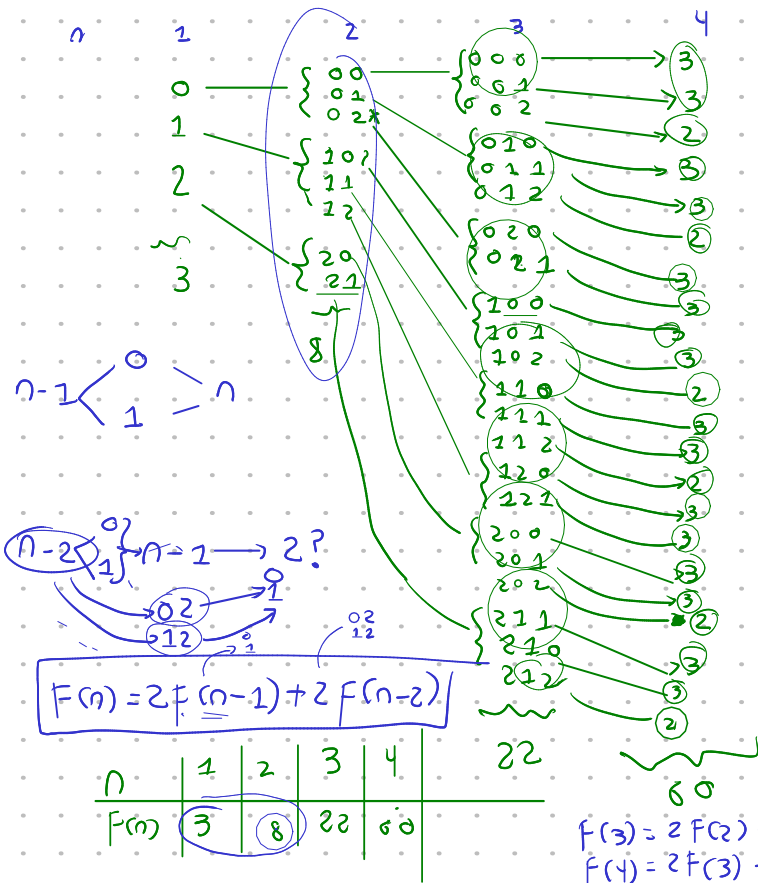 n 1 2 3 4
0
1
2
3
00
01
02
10
11
12
20
21
8
000
001
002
010
011
012
020
021
100
101
102
110
111
112
120
121
200
201
202
211
210
212
22
3
3
2
3
3
2
3
3
3
3
2
3
3
2
3
3
3
3
2
3
3
2
60
n-1 < 0 1 > n
n-2 < 0 1 } → n-1 → 2?
02 → 0
12 → 1
0
1
02
12
F(n) = 2F(n-1) + 2F(n-2)
n 1 2 3 4
F(n) 3 8 22 60
F(3) = 2F(2)
F(4) = 2F(3)